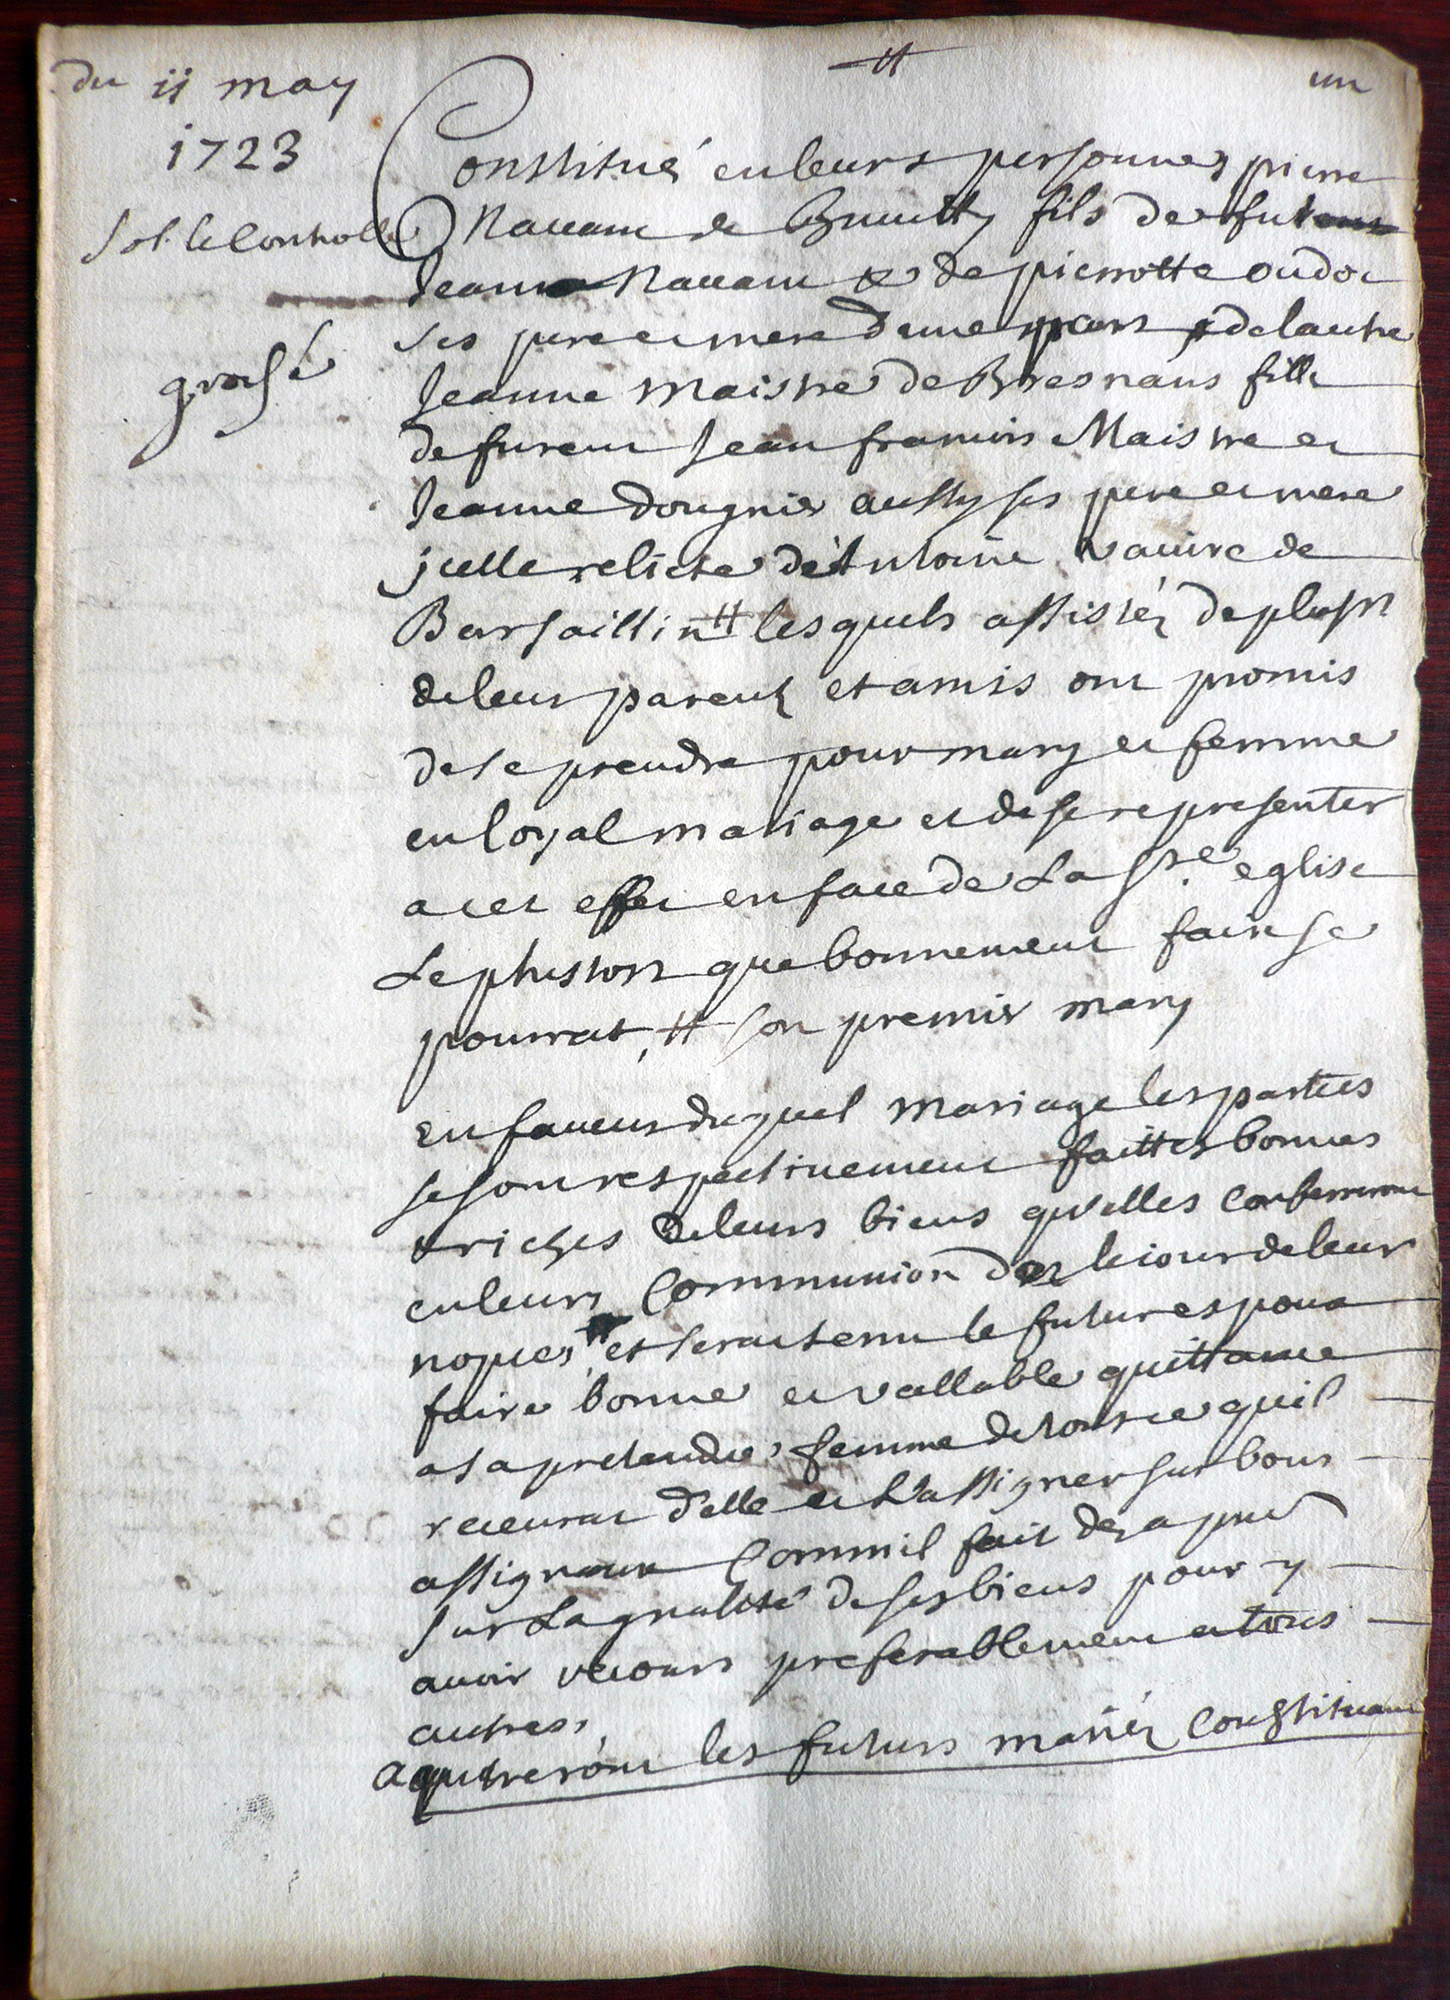 du 11 may
1723
un
Constitués en leurs personnes pierre
de fils de fut
Jean de pierrotte oudot
ses pere et mere d'une part et de lautre
grossé
Jeanne Maistre de Bresnans fille
de furent Jean francois Maistre et
Jeanne Dougnier aussy ses pere et mere
jcelle relicte d'Antoine vauire de
Barsaillin # lesquels assistéz de plus.rs
de leur parentz et amis ont promis
de se prendre pour mary et femme
en loyal mariage et de se representer
a cet effet en face de La S.te eglise
Le plustost que bonnement faire se
pourrat, # son premier mary
En faueur duquel mariage les parties
se sont respectiuement faittes bonnes
et riches de leurs biens qu'elles confereront
en leurs Communion dez le iour de leur
nopces, et serat tenu le futur espoux
faire bonne et vallable quittance
a sa pretendue femme de tout ce quil
receurat d'elle et L'assigner sur bons
assignaux Comm'il fait dez a pnt
sur La gnalité de ses biens pour y
auoir recours preferablement a tous
autres,
aquireront les futurs mariéz Constituant